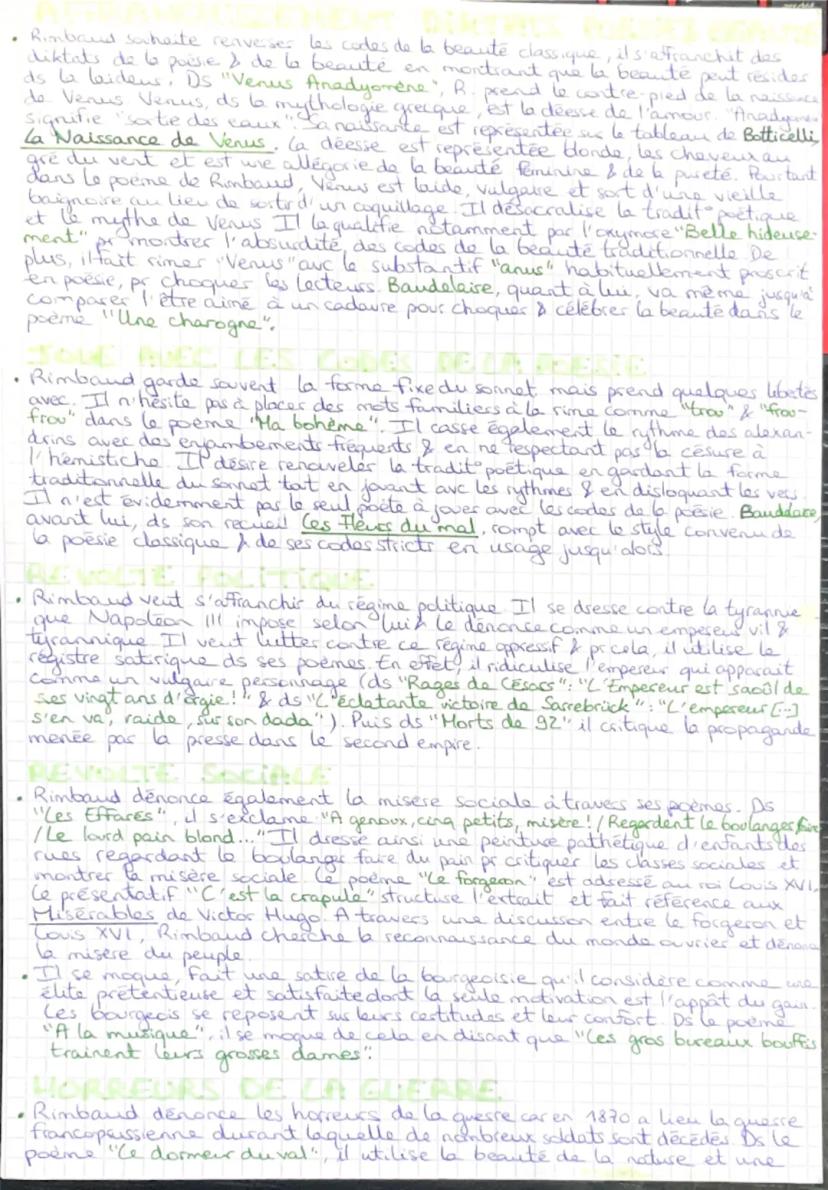 AFFRANCHISSEMENT DIKTATS POESIE & BEAUTE
• Rimbaud souhaite renverser les codes de la beauté classique, il s'affranchit des
diktats de la poésie & de la beauté en montrant que la beauté peut résider
ds la laideur. Ds "Venus Anadyomène", R. prend le contre-pied de la naissance
de Venus. Venus, ds la mythologie grecque, est la déesse de l'amour. "Anadyomène
signifie "sortie des eaux". Sa naissante est représentée sur le tableau de Botticelli,
La Naissance de Venus. La déesse est représentée blonde, les cheveux au
gré du vent et est une allégorie de la beauté féminine & de la pureté. Pourtant
dans le poème de Rimbaud, Venus est laide, vulgaire et sort d'une vieille
baignoire au lieu de sortir d'un coquillage. Il désacralise la tradit° poétique
et le mythe de Venus Il la qualifie notamment par l'oxymore "Belle hideuse-
ment" pr montrer l'absurdité des codes de la beauté traditionnelle. De
plus, il fait rimer "Venus" avc le substantif "anus" habituellement proscrit
en poésie, pr choquer les lecteurs. Baudelaire, quant à lui, va même jusqu'à
comparer l'être aimé à un cadavre pour choquer & célébrer la beauté dans le
poème "Une charogne".
JOUE AVEC LES CODES DE LA POESIE
• Rimbaud garde souvent la forme fixe du sonnet mais prend quelques libertés
avec. Il n'hésite pas à placer des mots familiers à la rime comme "trou" & "frou-
frou" dans le poème "Ma bohème". Il casse également le rythme des alexan-
drins avec des enjambements fréquents & en ne respectant pas la césure à
l'hémistiche. Il désire renouveler la tradit° poétique en gardant la forme
traditionnelle du sonnet tout en jouant avc les rythmes & en disloquant les vers.
Il n'est évidemment pas le seul poète à jouer avec les codes de la poésie. Bauddaire,
avant lui, ds son recueil Les Fleurs du mal, rompt avec le style convenu de
la poésie classique & de ses codes stricts en usage jusqu'alors.
REVOLTE POLITIQUE
• Rimbaud veut s'affranchir du régime politique. Il se dresse contre la tyrannie
que Napoléon III impose selon lui & le dénonce comme un empereur vil &
tyrannique Il veut lutter contre ce régime oppressif & pr cela, il utilise le
registre satirique ds ses poèmes. En effet, il ridiculise l'empereur qui apparait
comme un vulgaire personnage (ds "Rages de Césars": "L'Empereur est saoûl de
ses vingt ans d'orgie!" & ds "L'éclatante victoire de Sarrebrück": "L'empereur [...]
s'en va, raide, sur son dada"). Puis ds "Morts de 92" il critique la propagande
menée par la presse dans le second empire.
REVOLTE SOCIALE
• Rimbaud dénonce également la misère sociale à travers ses poèmes. Ds
"Les Effarés", il s'exclame "A genoux, cinq petits, misère! / Regardent le boulanger faire
/ Le lourd pain blond..." Il dresse ainsi une peinture pathétique d'enfants des
rues regardant le boulanger faire du pain pr critiquer les classes sociales et
montrer la misère sociale. Le poème "Le forgeron" est adressé au roi Louis XVI,
Le présentatif "C'est la crapule" structure l'extrait et fait référence aux
Misérables de Victor Hugo. A travers une discussion entre le forgeron et
Louis XVI, Rimbaud cherche la reconnaissance du monde ouvrier et dénonce
la misère du peuple.
• Il se moque, fait une satire de la bourgeoisie qu'il considère comme une
élite prétentieuse et satisfaite dont la seule motivation est l'appât du gain.
Les bourgeois se reposent sur leurs certitudes et leur confort. Ds le poème
"A la musique", il se moque de cela en disant que "Les gros bureaux bouffis
trainent leurs grosses dames".
HORREURS DE LA GUERRE
• Rimbaud dénonce les horreurs de la guerre car en 1870 a lieu la guerre
francoprussienne durant laquelle de nombreux soldats sont décédés. Ds le
poème "Le dormeur du val", il utilise la beauté de la nature et une